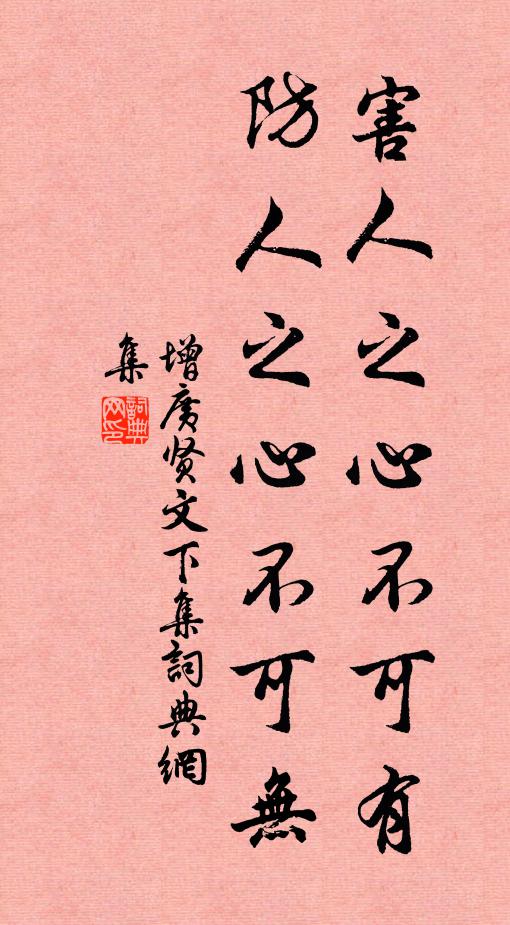 害人之心不可有
防人之心不可無
增廣贤文下集詞典網
集
詞典网印